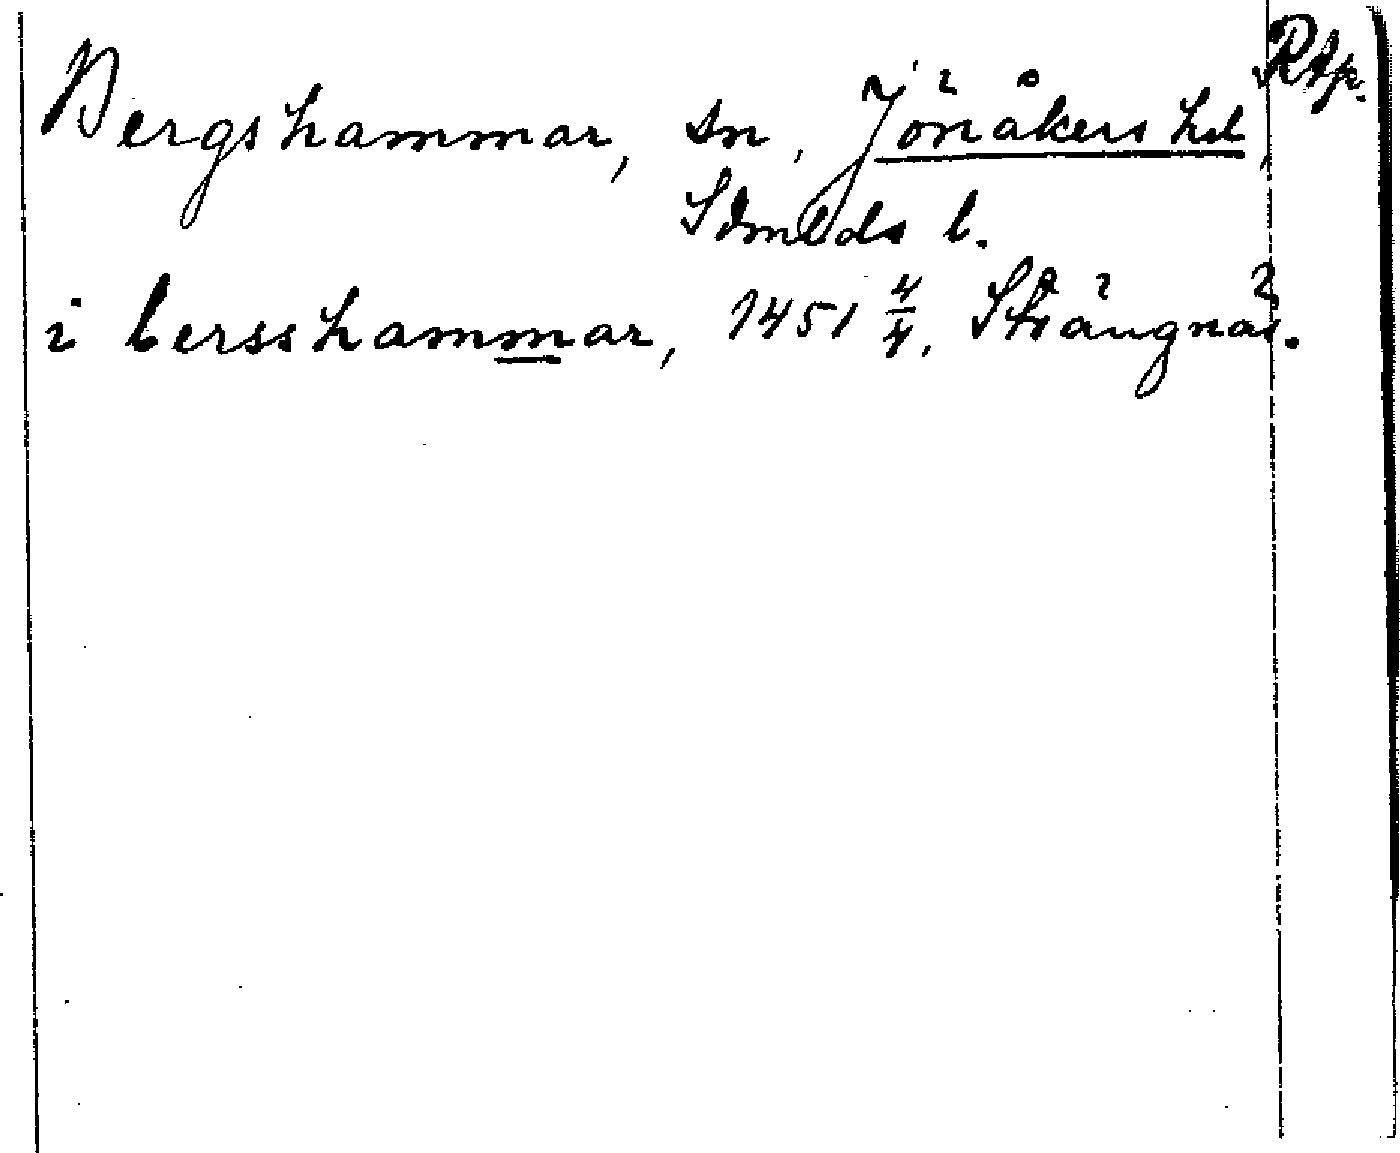 Bergshammar, sn, Jönåkers hd, Rtp.
Sdmlds l.
i bersshammar, 1451 4/4, Strängnäs.